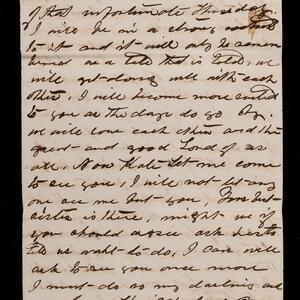 of that unfortunate Thursday.
I will be in a strong
to it and it will only be remem
bered as a tale that is told, we
will get along well with each
other, I will become more suited
to you as the days do go by.
we will love each other and the
great and good Lord of us
all, Now Kate let me come
to see you, I will not let any
one see me but you, your
sister is there, might we if
you should ask
us want to do, I can will
ask to see you once more
I must do so my darling